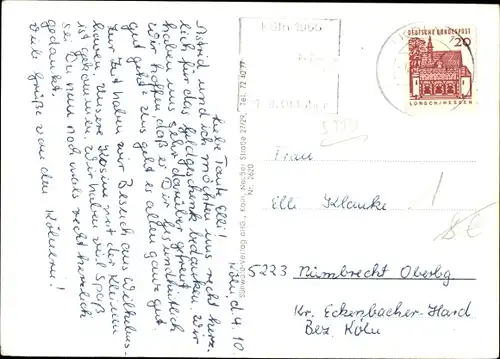 Köln, d. 4. 10.
Liebe Tante Elli!
Astrid und ich möchten uns recht herz-
lich für das Geldgeschenk bedanken. Wir
haben uns sehr darüber gefreut.
Wir hoffen daß es Dir gesundheitlich
gut geht. Uns geht es allen ganz gut.
Zur Zeit haben wir Besuch aus Wilhelms-
haven. Unsere Kosine mit der Kleinen
ist gekommen. Wir haben viel Spaß
sei Dir nun noch mals recht herzlich
gedankt.
Viele Grüße von den Kölnern!
DEUTSCHE BUNDESPOST
20
LORSCH/HESSEN
Frau
Elli Klauke
5223 Nümbrecht Oberbg
Kr. Eckenbacher-Hard
Bez. Köln